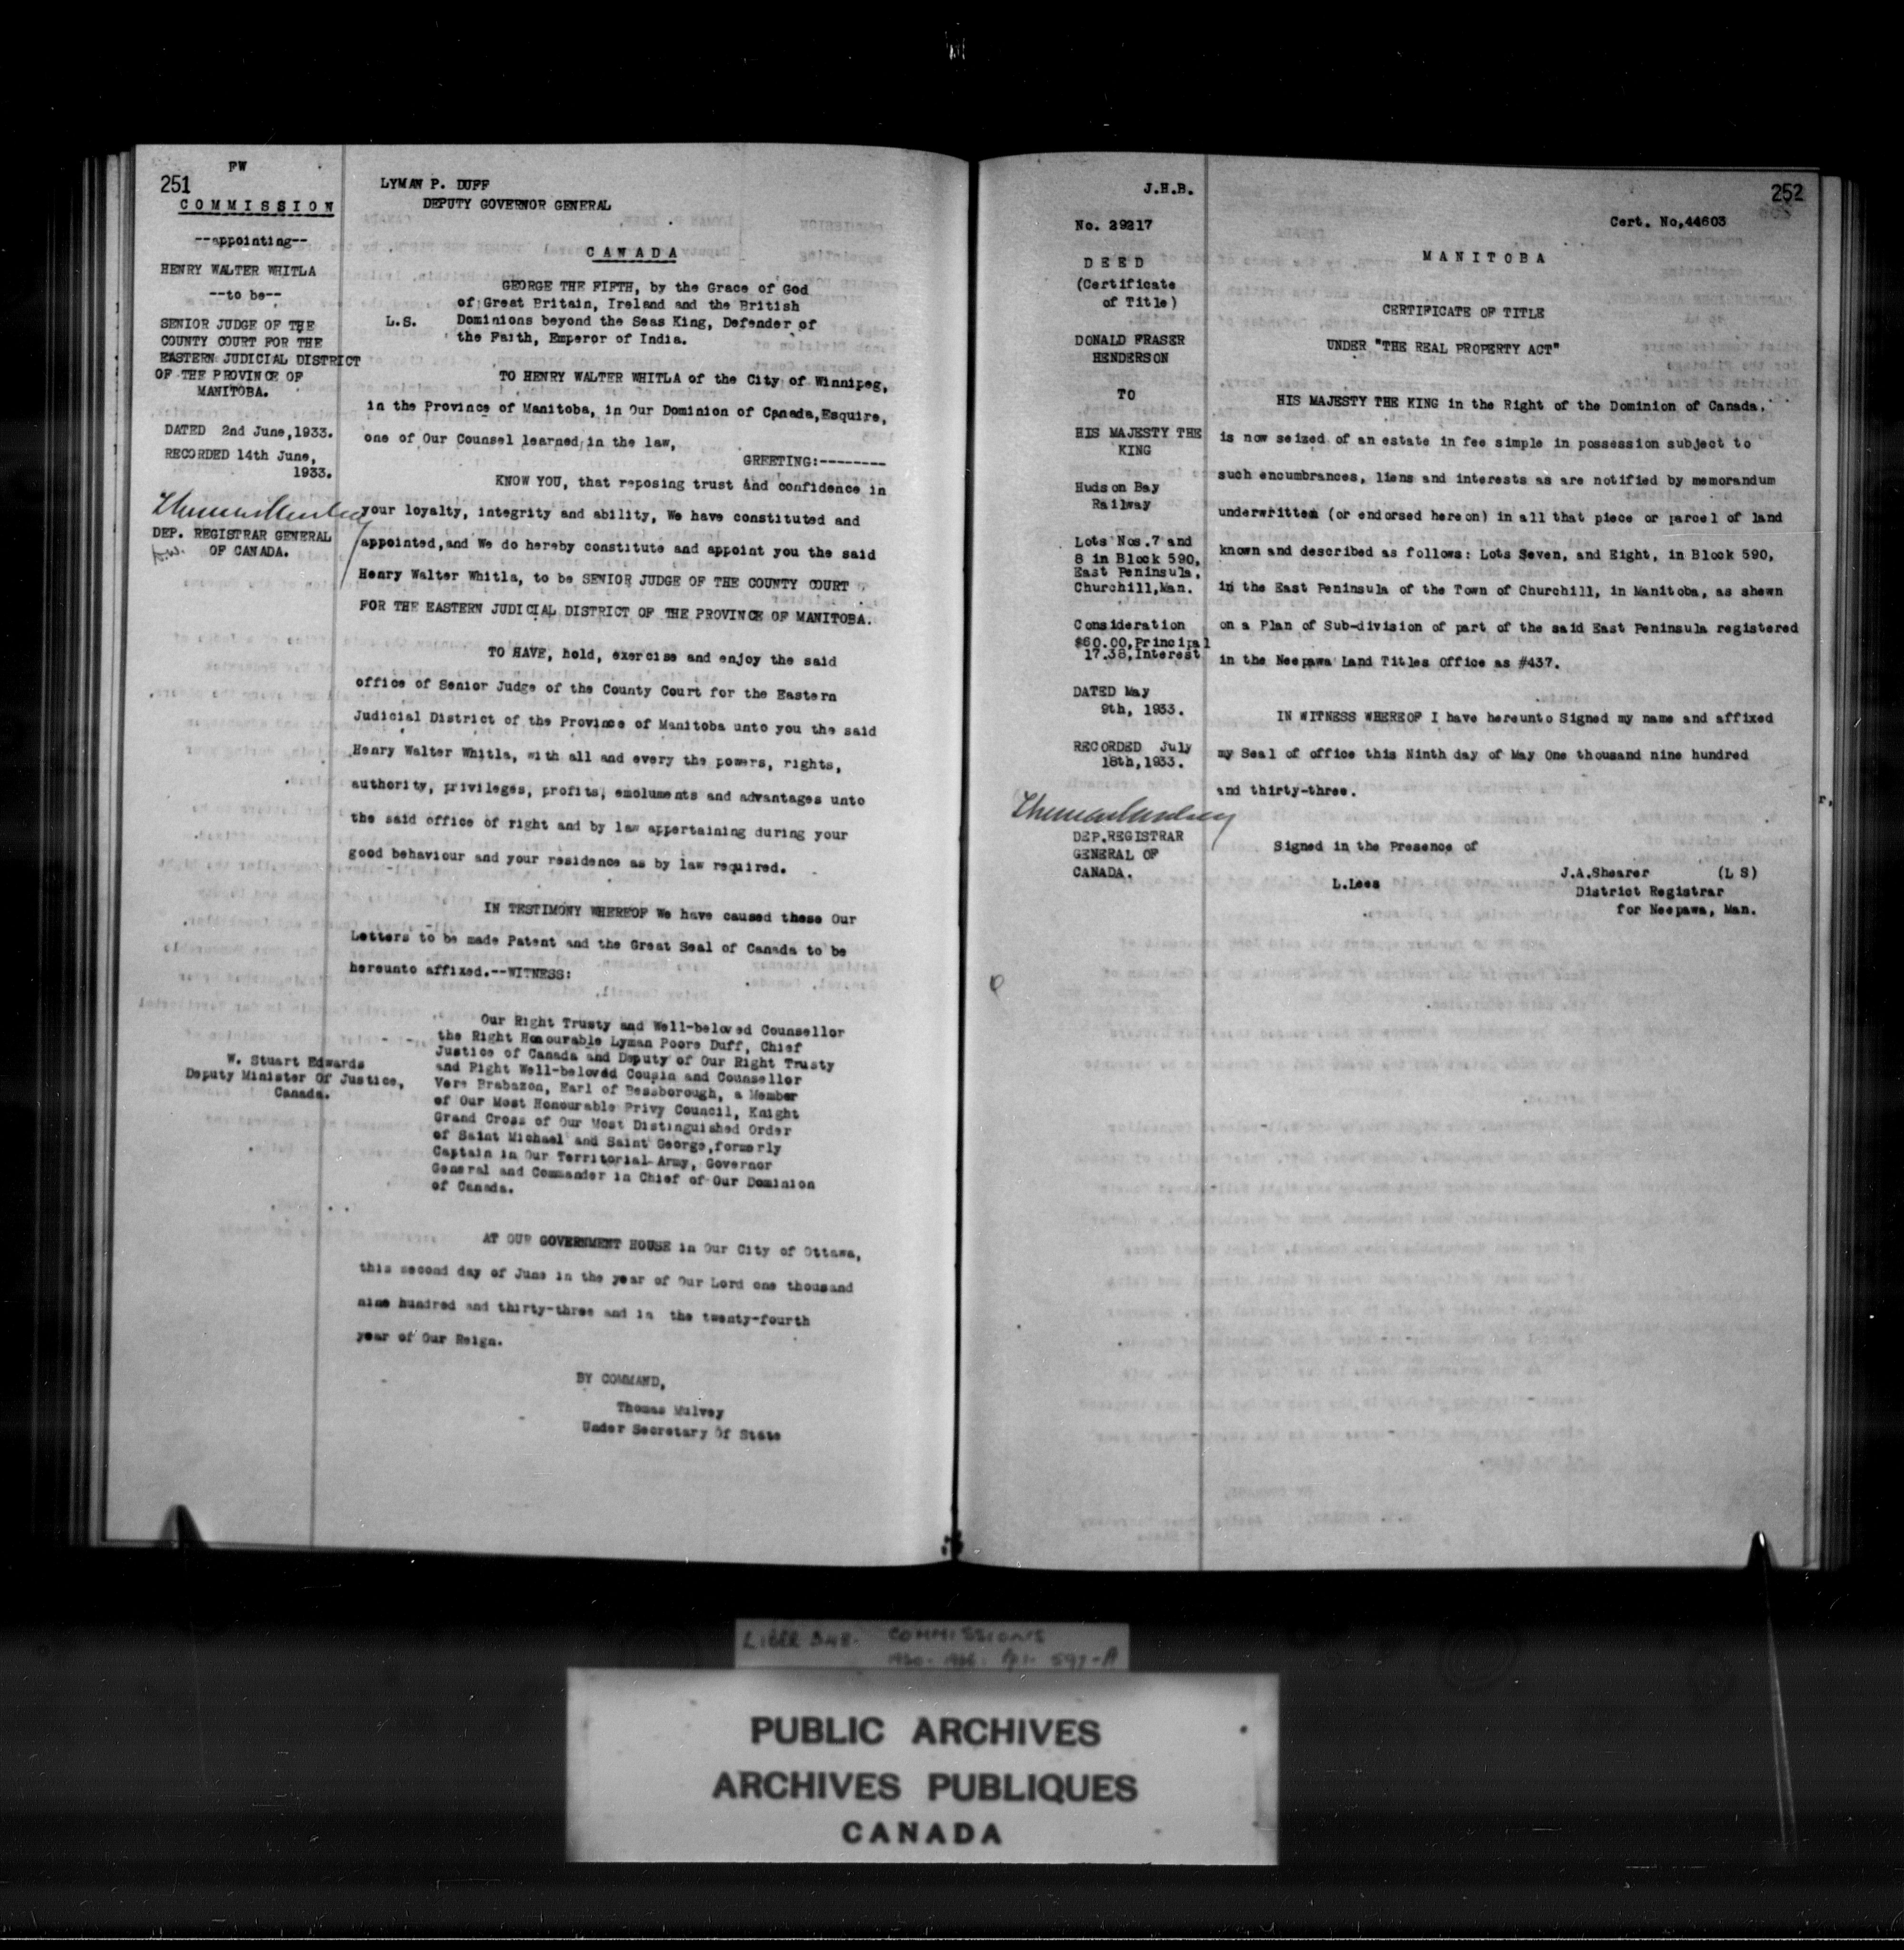 FW
251
COMMISSION
--appointing--
HENRY WALTER WHITLA
--to be--
SENIOR JUDGE OF THE
COUNTY COURT FOR THE
EASTERN JUDICIAL DISTRICT
OF THE PROVINCE OF
MANITOBA.
DATED 2nd June,1933.
RECORDED 14th June,
1933.
DEP. REGISTRAR GENERAL
OF CANADA.
W. Stuart Edwards
Deputy Minister Of Justice,
Canada.
LYMAN P. DUFF
DEPUTY GOVERNOR GENERAL
CANADA
GEORGE THE FIFTH, by the Grace of God
of Great Britain, Ireland and the British
L.S. Dominions beyond the Seas King, Defender of
the Faith, Emperor of India.
TO HENRY WALTER WHITLA of the City of Winnipeg,
in the Province of Manitoba, in Our Dominion of Canada,Esquire,
one of Our Counsel learned in the law,
GREETING:--------
KNOW YOU, that reposing trust and confidence in
your loyalty, integrity and ability, We have constituted and
appointed,and We do hereby constitute and appoint you the said
Henry Walter Whitla, to be SENIOR JUDGE OF THE COUNTY COURT
FOR THE EASTERN JUDICIAL DISTRICT OF THE PROVINCE OF MANITOBA.
TO HAVE, hold, exercise and enjoy the said
office of Senior Judge of the County Court for the Eastern
Judicial District of the Province of Manitoba unto you the said
Henry Walter Whitla, with all and every the powers, rights,
authority, privileges, profits, emoluments and advantages unto
the said office of right and by law appertaining during your
good behaviour and your residence as by law required.
IN TESTIMONY WHEREOF We have caused these Our
Letters to be made Patent and the Great Seal of Canada to be
hereunto affixed.--WITNESS:
Our Right Trusty and Well-beloved Counsellor
the Right Honourable Lyman Poore Duff, Chief
Justice of Canada and Deputy of Our Right Trusty
and Right Well-beloved Cousin and Counsellor
Vere Brabazon, Earl of Bessborough, a Member
of Our Most Honourable Privy Council, Knight
Grand Cross of Our Most Distinguished Order
of Saint Michael and Saint George,formerly
Captain in Our Territorial Army, Governor
General and Commander in Chief of Our Dominion
of Canada.
AT OUR GOVERNMENT HOUSE in Our City of Ottawa,
this second day of June in the year of Our Lord one thousand
nine hundred and thirty-three and in the twenty-fourth
year of Our Reign.
BY COMMAND,
Thomas Mulvey
Under Secretary Of State
J.H.B.
252
No. 29217
Cert. No,44603
DEED
(Certificate
of Title)
DONALD FRASER
HENDERSON
TO
HIS MAJESTY THE
KING
Hudson Bay
Railway
Lots Nos.7 and
8 in Block 590,
East Peninsula,
Churchill,Man.
Consideration
$60.00,Principal
17.38,Interest
DATED May
9th, 1933.
RECORDED July
18th,1933.
DEP.REGISTRAR
GENERAL OF
CANADA.
MANITOBA
CERTIFICATE OF TITLE
UNDER "THE REAL PROPERTY ACT"
HIS MAJESTY THE KING in the Right of the Dominion of Canada.
is now seized of an estate in fee simple in possession subject to
such encumbrances, liens and interests as are notified by memorandum
underwritten (or endorsed hereon) in all that piece or parcel of land
known and described as follows: Lots Seven, and Eight, in Block 590,
in the East Peninsula of the Town of Churchill, in Manitoba, as shewn
on a Plan of Sub-division of part of the said East Peninsula registered
in the Neepawa Land Titles Office as #437.
IN WITNESS WHEREOF I have hereunto Signed my name and affixed
my Seal of office this Ninth day of May One thousand nine hundred
and thirty-three.
Signed in the Presence of
L.Lees
J.A.Shearer (L S)
District Registrar
for Neepawa, Man.
LIBER 348. COMMISSIONS
PUBLIC ARCHIVES
ARCHIVES PUBLIQUES
CANADA